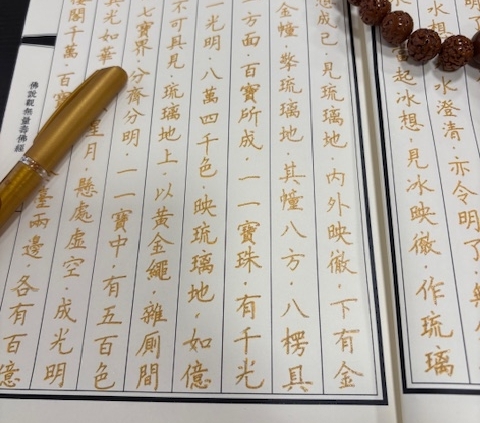 水澄清·亦令明了·
起冰想·見冰映徹·作琉璃
想成已·見琉璃地·內外映徹·下有金
金幢·擎琉璃地·其幢八方·八楞具
一方面·百寶所成·一一寶珠·有千光
一光明·八萬四千色·映琉璃地·如億
不可具見·琉璃地上·以黃金繩 雜廁間
七寶界·分齊分明·一一寶中·有五百色
其光如華 星月·懸處虛空·成光明
樓閣千萬·百寶 臺兩邊·各有百億
佛說觀無量壽佛經